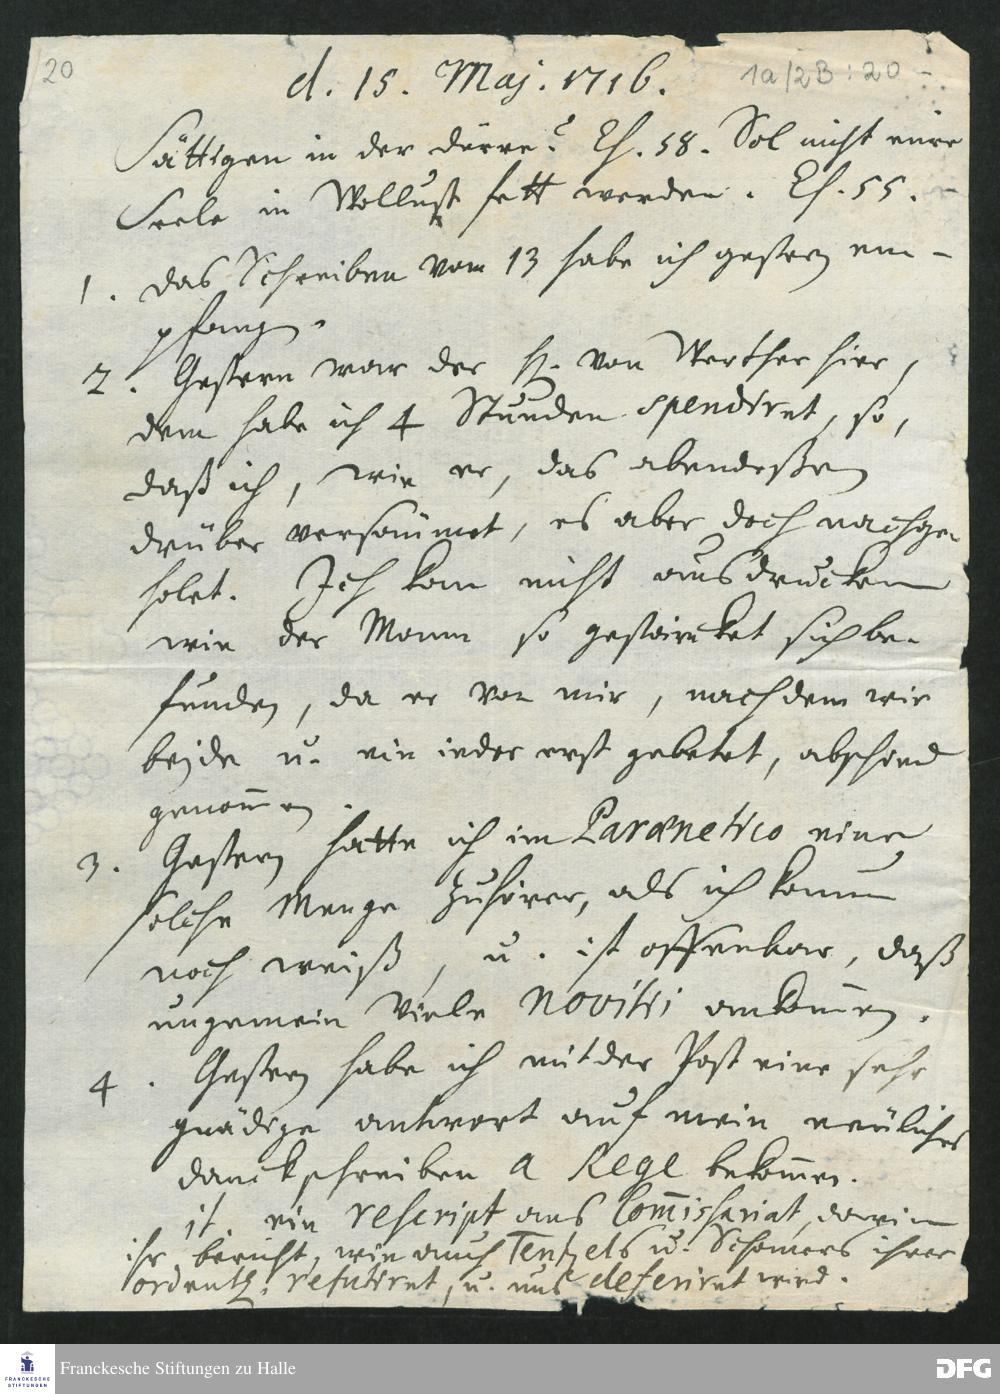 20
1a/2B : 20
d. 15. Maj. 1716.
Sättigen in der dürre? Es. 58. Sol nicht eure
Seele in Wollust fett werden. Es. 55.
1. das Schreiben vom 13 habe ich gestern em-
pfangen.
2. Gestern war der H. von Werther hier,
dem habe ich 4 Stunden spendiret, so,
daß ich, wie er, das abendeßen
drüber versäumet, es aber doch nachge-
holet. Ich kan nicht ausdrucken
wie der Mann so gestärcket sich be-
funden, da er von mir, nachdem wir
beyde u. ein ieder erst gebetet, abschied
genommen.
3. Gestern hatte ich im Paraenetico eine
solche Menge Zuhörer, als ich kaum
noch weiß, u. ist offenbar, daß
ungemein viele Novitii ankommen.
4. Gestern habe ich mit der Post eine sehr
gnädige antwort auf mein neuliches
danckschreiben a Rege bekommen.
it. ein rescript aus Commissariat, darin
ihr bericht, wie auch Tentzels u. Schomers ihrer
ordentl. refutiret, u. uns deferiret wird.
FRANCKESCHE
STIFTUNGEN
Franckesche Stiftungen zu Halle
DFG